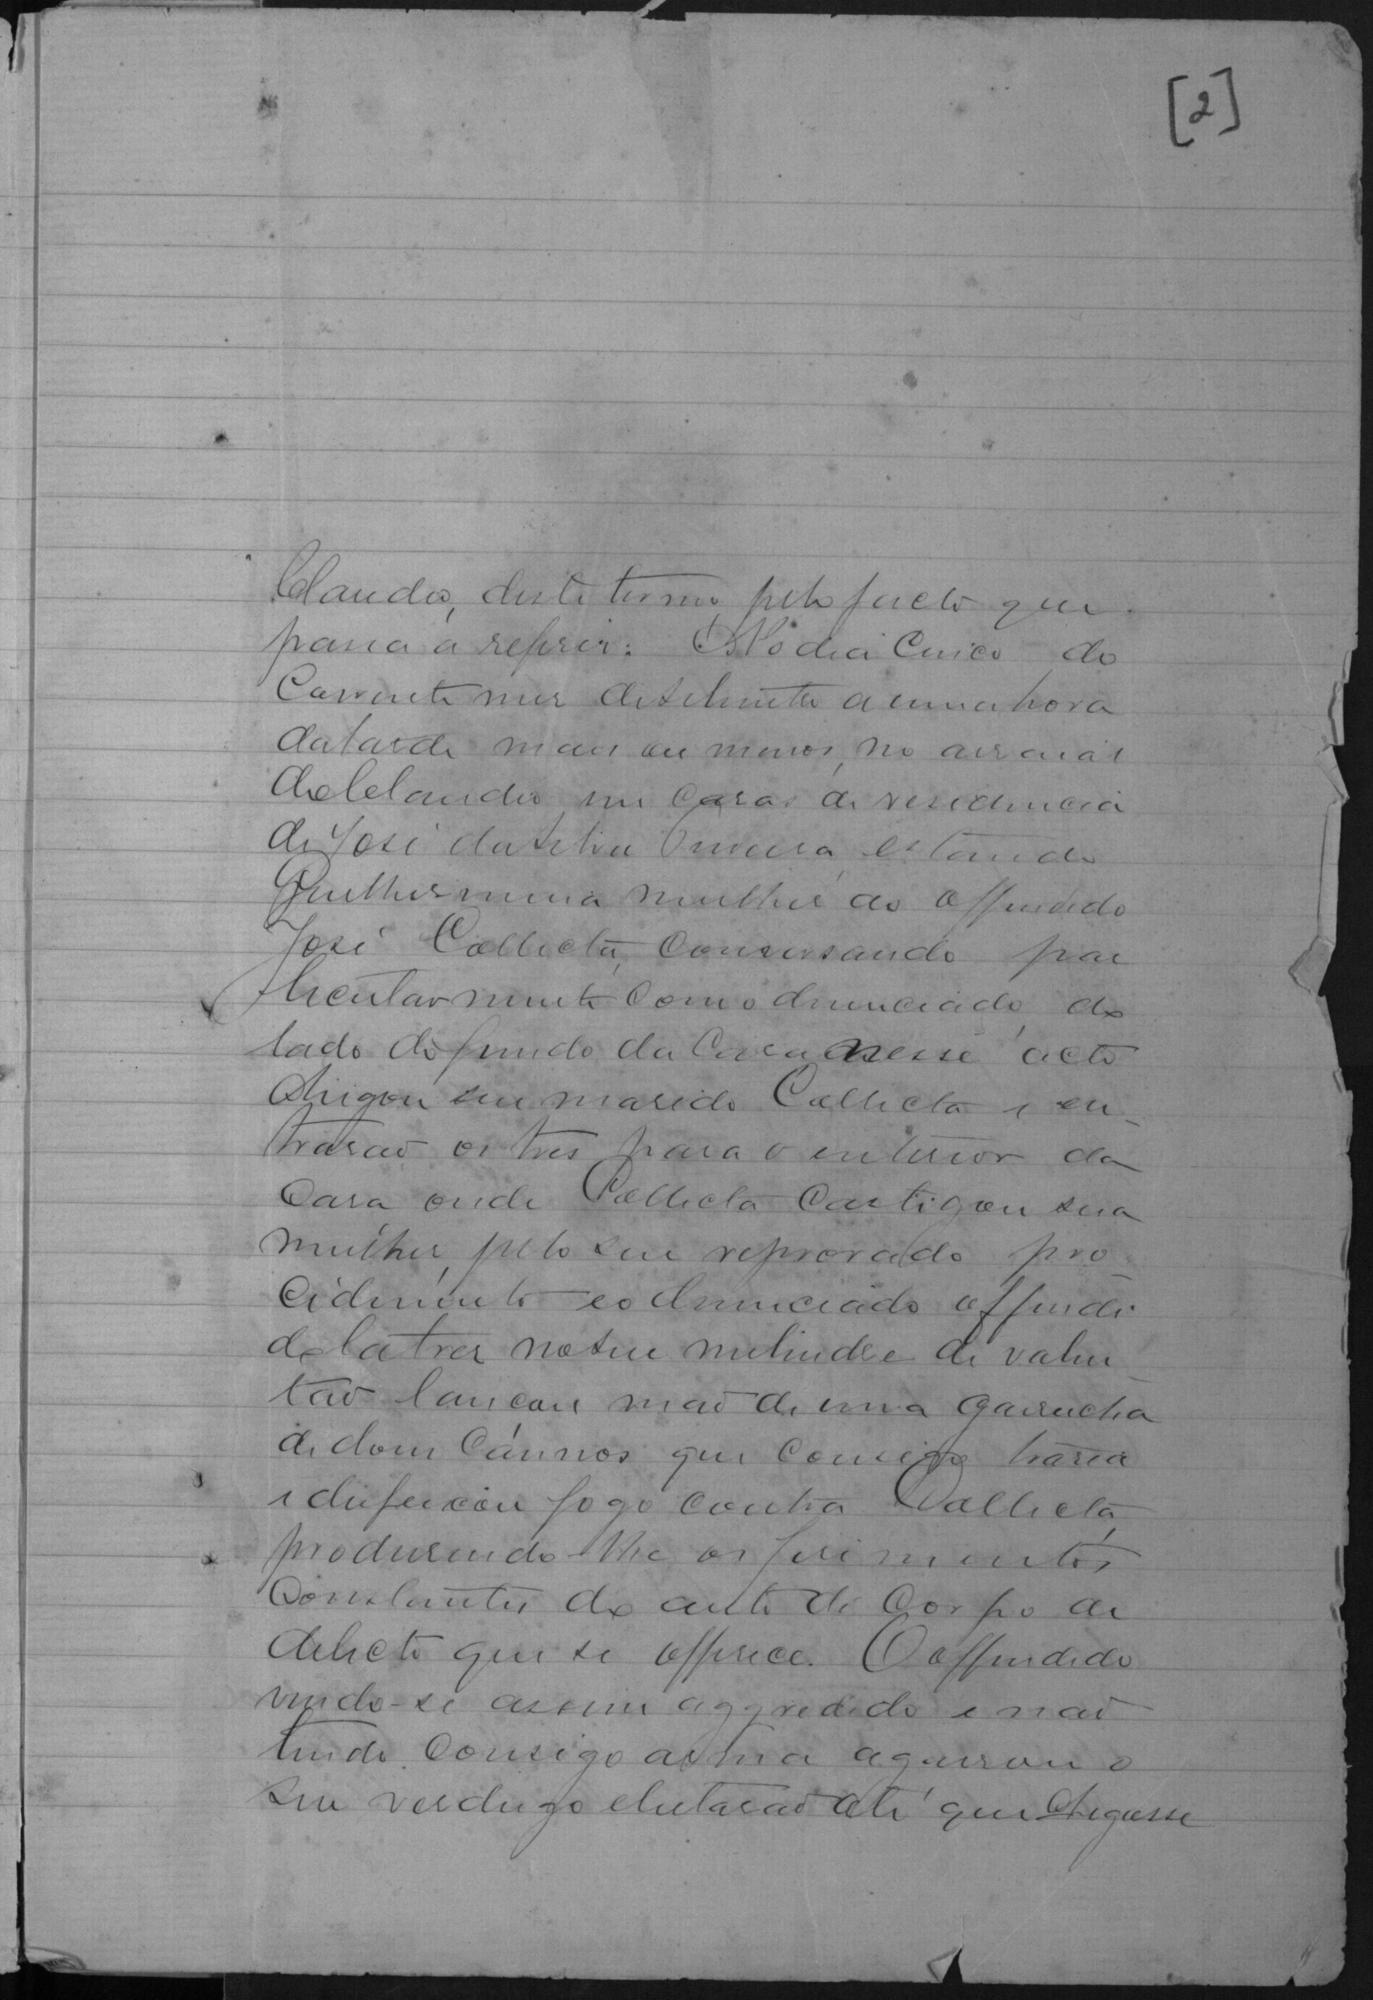 [2]
Claudio, deste termo, pelo facto que
passa a referir: No dia cinco do
Corrente mez de Setembro a uma hora
da tarde mais ou menos, no arraial
do Claudio em casa de residencia
de José da Silva estando
Guilhermina mulher do offendido
José Collecta, conversando par
ticularmente com o denunciado do
lado do fundo da casa nesse acto
chegou seu marido Collecta e en-
trarão os tres para o interior da
Casa onde Collecta castigou sua
mulher, pelo seu reprovado pro-
cedimento e o denunciado offendi
do no seu melindre de valen
tão lançou mão de uma garrucha
de dous cannos que comsigo trasia
e disfeixou fogo contra Collecta,
produsindo-lhe os ferimentos
Constantes do auto de Corpo de
delicto que se offerece. O offendido
vendo-se assim aggredido e não
tendo comsigo arma agarrou o
seu verdugo e lutarão até que chegasse